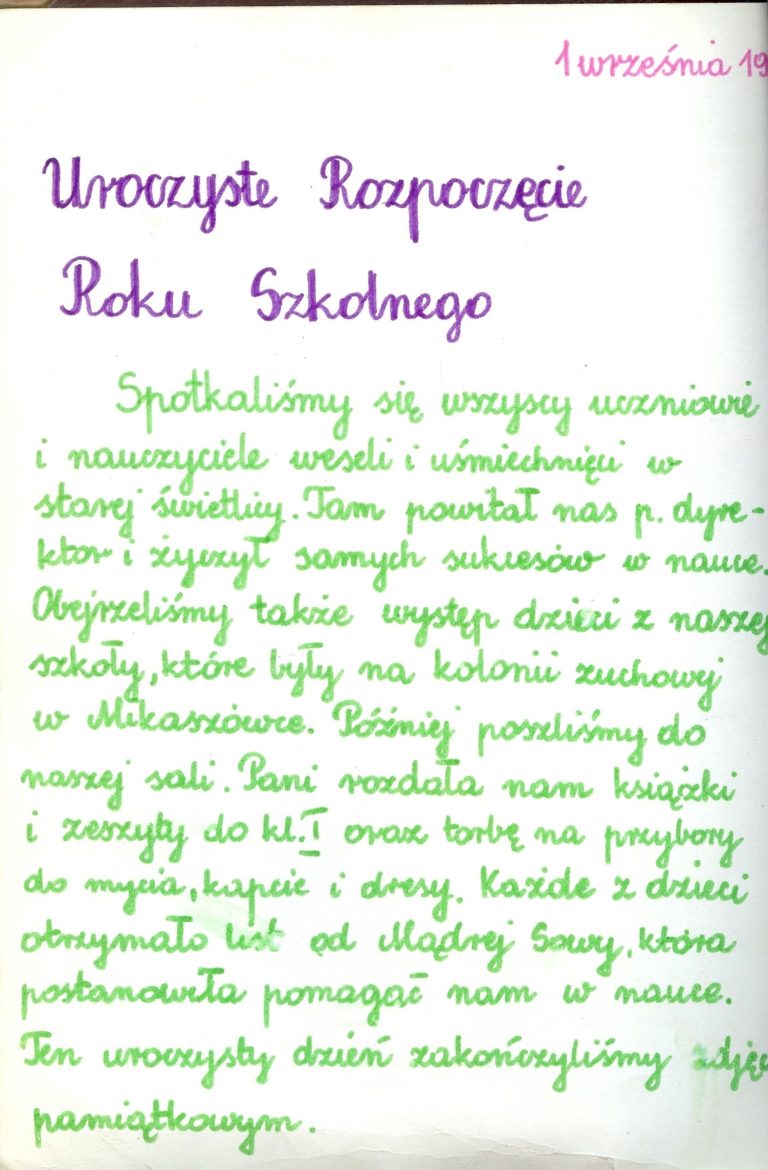 1 września 19
Uroczyste Rozpoczęcie
Roku Szkolnego
Spotkaliśmy się wszyscy uczniowie
i nauczyciele weseli i uśmiechnięci w
starej świetlicy. Tam powitał nas p. dyre-
ktor i życzył samych sukcesów w nauce.
Obejrzeliśmy także występ dzieci z naszej
szkoły, które były na kolonii zuchowej
w Mikaszówce. Później poszliśmy do
naszej sali. Pani rozdała nam książki
i zeszyty do kl. I oraz torbę na przybory
do mycia, kapcie i dresy. Każde z dzieci
otrzymało list od Mądrej Sowy, która
postanowiła pomagać nam w nauce.
Ten uroczysty dzień zakończyliśmy zdję
pamiątkowym.